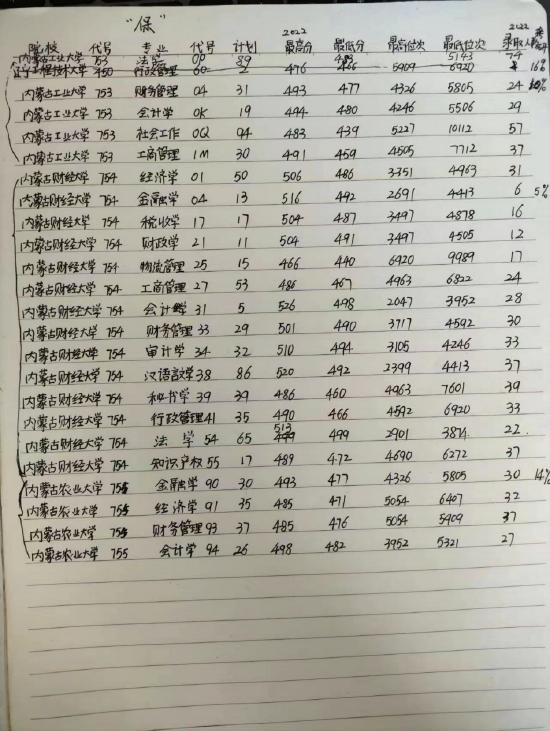 "保"
院校 代号 专业 代号 计划 2022最高分 最低分 最高位次 最低位次 2022录取人
内蒙古工业大学 753 法学 0P 89 483 5143 74
辽宁工程技术大学 450 行政管理 60 2 476 466 5909 6920 16%
内蒙古工业大学 753 财务管理 04 31 493 477 4326 5805 24
内蒙古工业大学 753 会计学 0K 19 494 480 4246 5506 29
内蒙古工业大学 753 社会工作 0Q 94 483 439 5227 10112 57
内蒙古工业大学 753 工商管理 1M 30 491 459 4505 7712 37
内蒙古财经大学 754 经济学 01 50 506 486 3351 4963 31
内蒙古财经大学 754 金融学 04 13 516 492 2691 4413 6 5%
内蒙古财经大学 754 税收学 17 17 504 487 3497 4878 16
内蒙古财经大学 754 财政学 21 11 504 491 3497 4505 12
内蒙古财经大学 754 物流管理 25 15 466 440 6920 9989 17
内蒙古财经大学 754 工商管理 27 53 486 467 4963 6822 24
内蒙古财经大学 754 会计学 31 5 526 498 2047 3952 28
内蒙古财经大学 754 财务管理 33 29 501 490 3717 4592 30
内蒙古财经大学 754 审计学 34 32 510 494 3105 4246 33
内蒙古财经大学 754 汉语言学 38 86 520 492 2399 4413 37
内蒙古财经大学 754 秘书学 39 39 486 460 4963 7601 39
内蒙古财经大学 754 行政管理 41 35 490 466 4592 6920 33
内蒙古财经大学 754 法学 54 65 513 499 2901 3874 22
内蒙古财经大学 754 知识产权 55 17 489 472 4690 6272 37
内蒙古农业大学 755 金融学 90 30 493 477 4326 5805 30 14%
内蒙古农业大学 755 经济学 91 35 485 471 5054 6407 32
内蒙古农业大学 755 财务管理 93 37 485 476 5054 5909 37
内蒙古农业大学 755 会计学 94 26 498 482 3952 5321 27